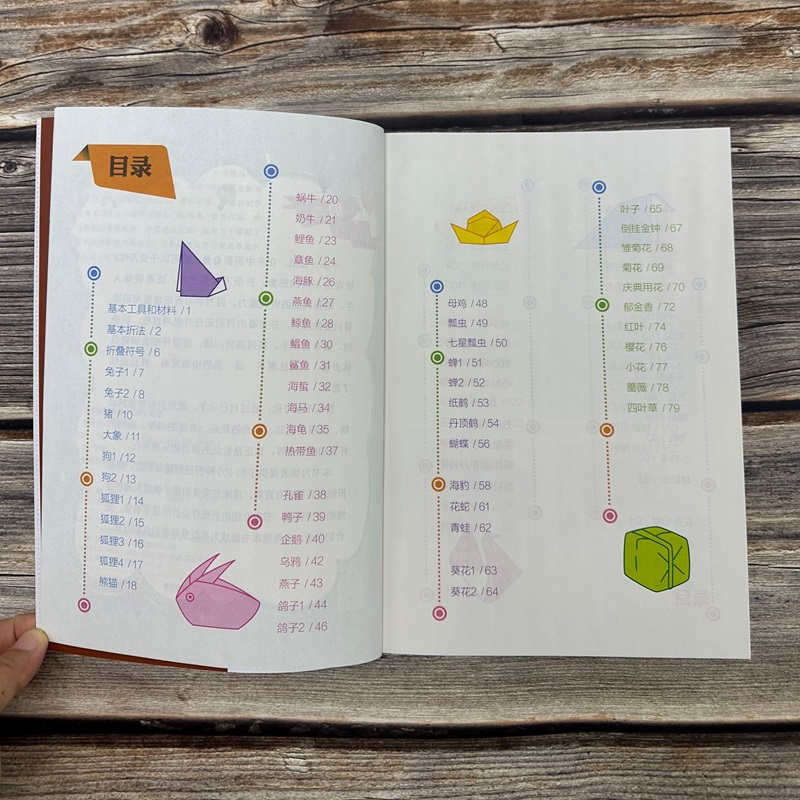 目录
基本工具和材料 / 1
基本折法 / 2
折叠符号 / 6
兔子1 / 7
兔子2 / 8
猪 / 10
大象 / 11
狗1 / 12
狗2 / 13
狐狸1 / 14
狐狸2 / 15
狐狸3 / 16
狐狸4 / 17
熊猫 / 18
蜗牛 / 20
奶牛 / 21
鲤鱼 / 23
章鱼 / 24
海豚 / 26
燕鱼 / 27
鲸鱼 / 28
鲳鱼 / 30
鲨鱼 / 31
海蜇 / 32
海马 / 34
海龟 / 35
热带鱼 / 37
孔雀 / 38
鸭子 / 39
企鹅 / 40
乌鸦 / 42
燕子 / 43
鸽子1 / 44
鸽子2 / 46
母鸡 / 48
瓢虫 / 49
七星瓢虫 / 50
蝉1 / 51
蝉2 / 52
纸鹤 / 53
丹顶鹤 / 54
蝴蝶 / 56
海豹 / 58
花蛇 / 61
青蛙 / 62
葵花1 / 63
葵花2 / 64
叶子 / 65
倒挂金钟 / 67
雏菊花 / 68
菊花 / 69
庆典用花 / 70
郁金香 / 72
红叶 / 74
樱花 / 76
小花 / 77
蔷薇 / 78
四叶草 / 79